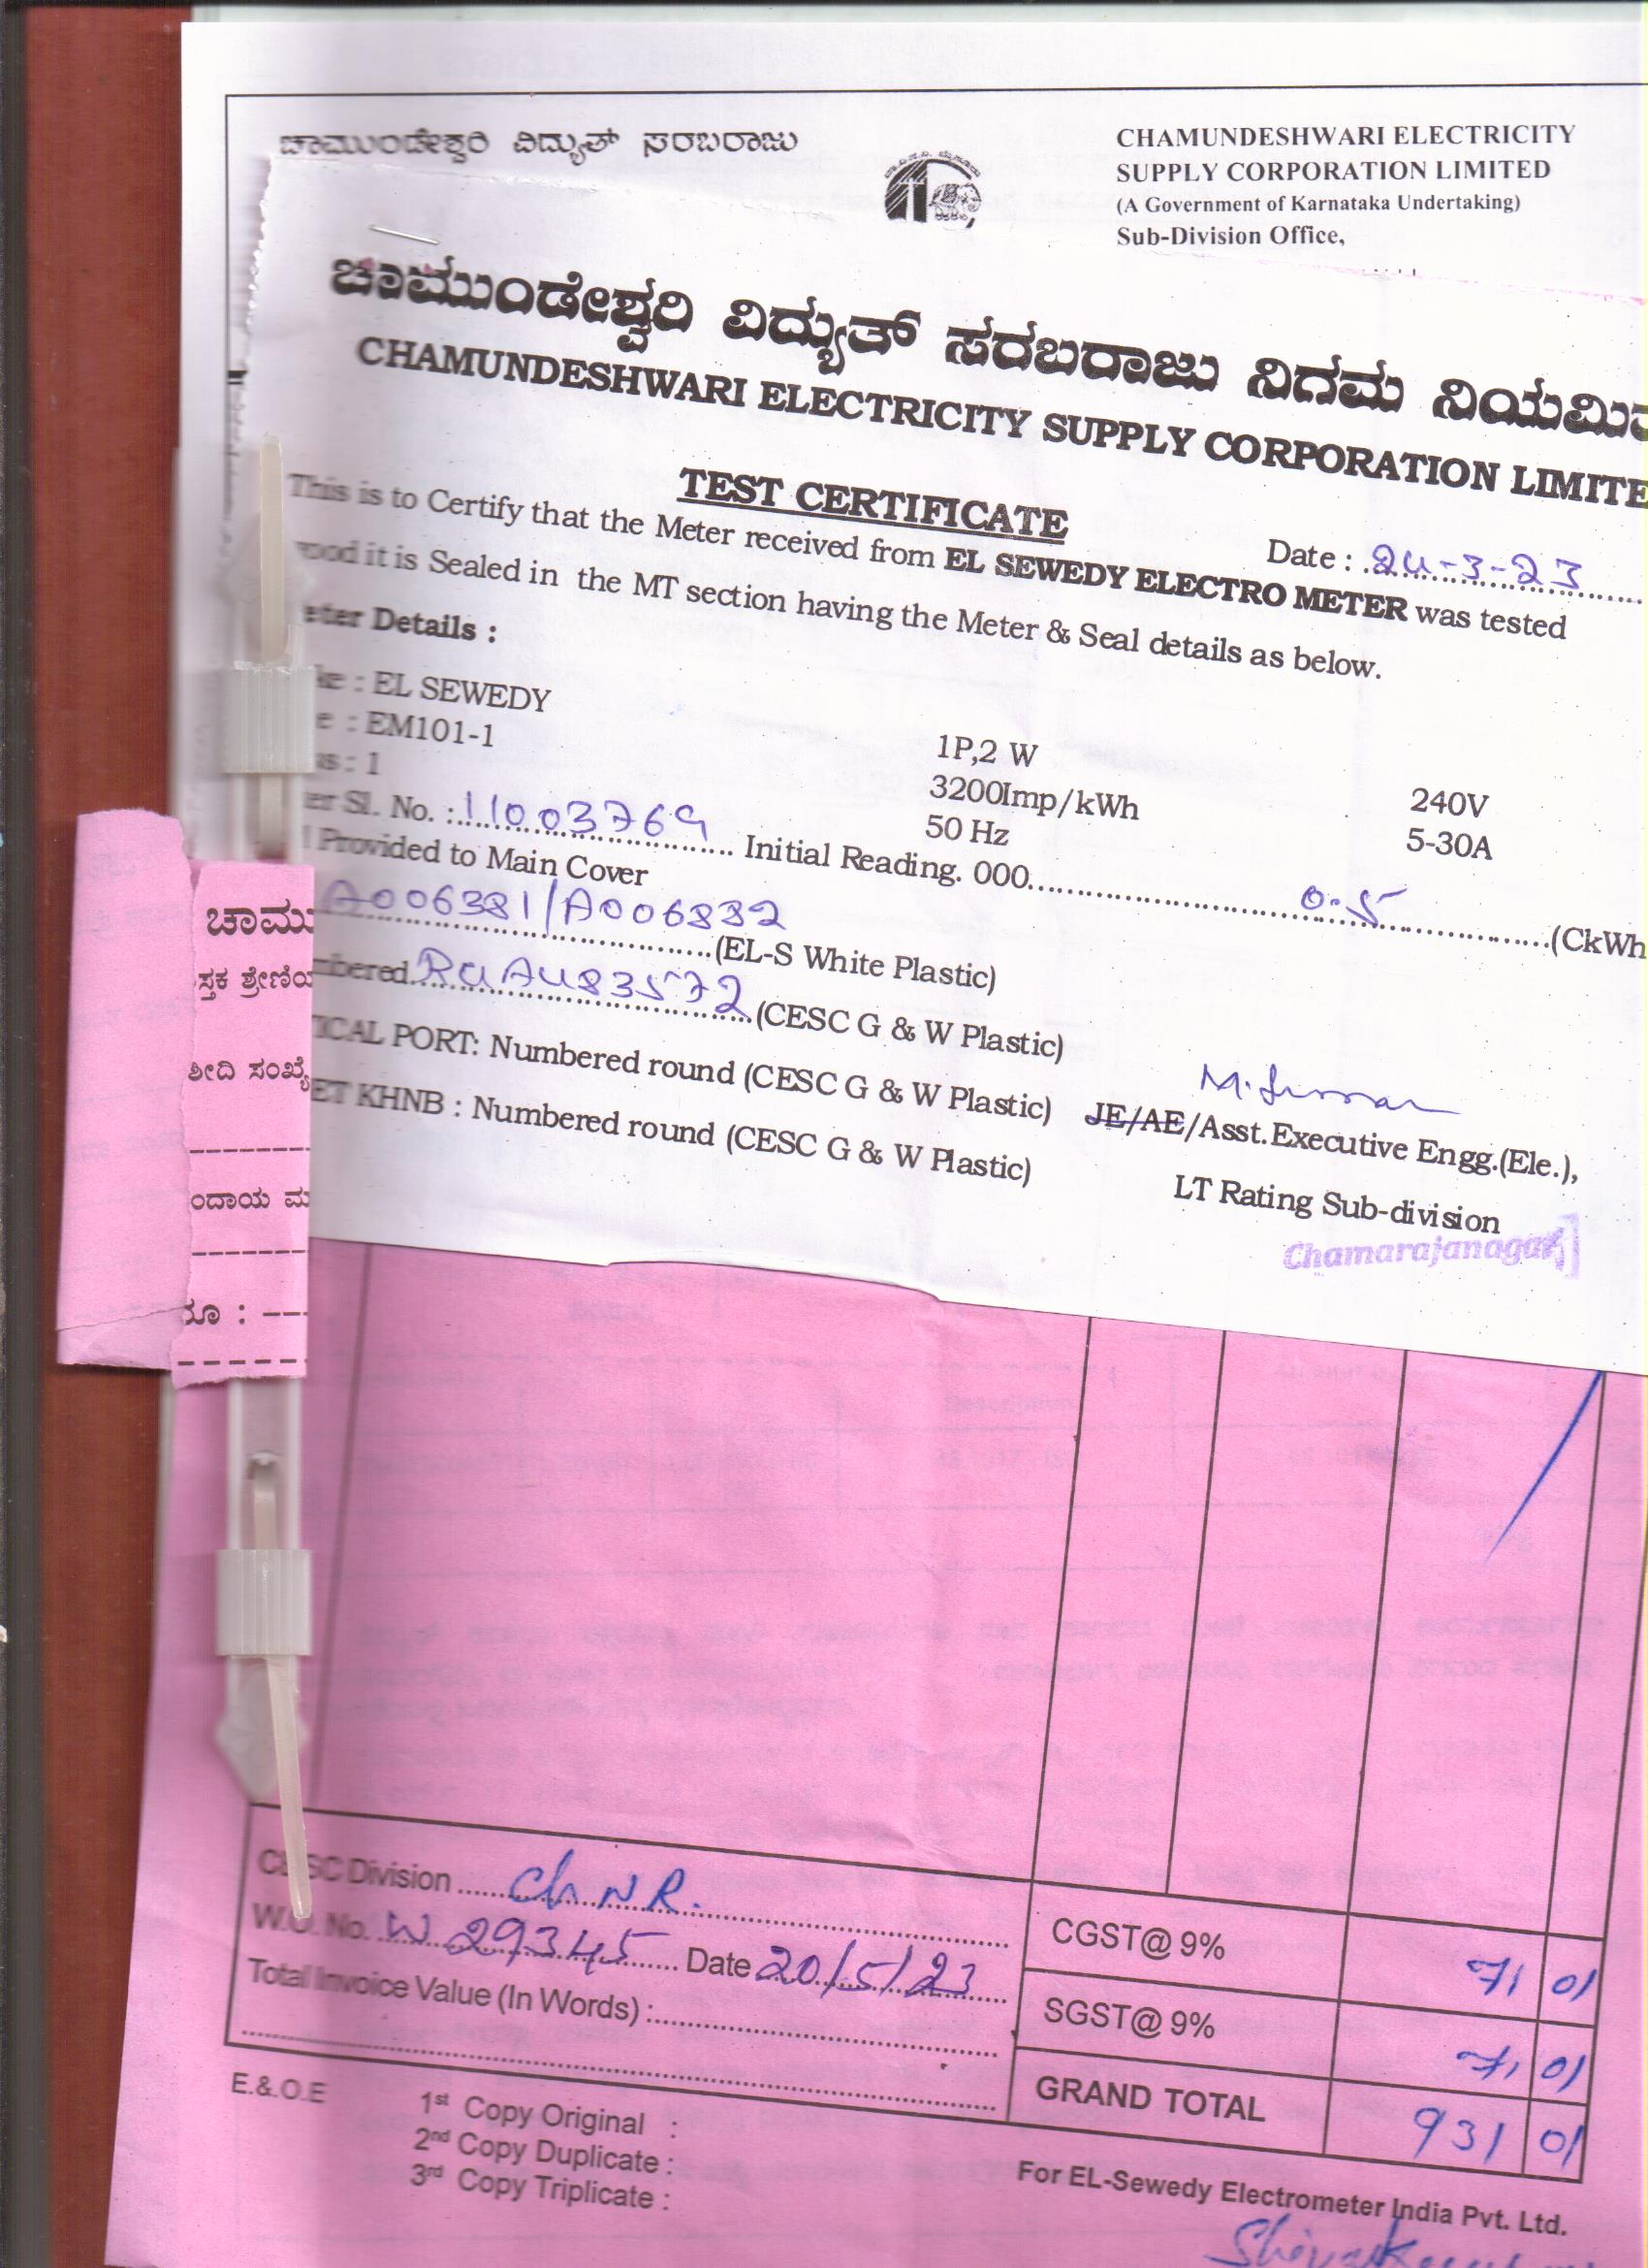 ಚಾಮುಂಡೇಶ್ವರಿ ವಿದ್ಯುತ್ ಸರಬರಾಜು
CHAMUNDESHWARI ELECTRICITY
SUPPLY CORPORATION LIMITED
(A Government of Karnataka Undertaking)
Sub-Division Office,
ಚಾಮುಂಡೇಶ್ವರಿ ವಿದ್ಯುತ್ ಸರಬರಾಜು ನಿಗಮ ನಿಯಮಿತ
CHAMUNDESHWARI ELECTRICITY SUPPLY CORPORATION LIMITE
TEST CERTIFICATE
Date : 24-3-23
This is to Certify that the Meter received from EL SEWEDY ELECTRO METER was tested
ood it is Sealed in the MT section having the Meter & Seal details as below.
eter Details :
ke : EL SEWEDY
1P,2 W
240V
e : EM101-1
3200Imp/kWh
5-30A
ss : 1
50 Hz
er Sl. No. : 11003769 Initial Reading. 000 0.5 (CkWh
Provided to Main Cover
A006381/A006882
(EL-S White Plastic)
mbered (CESC G & W Plastic)
ICAL PORT: Numbered round (CESC G & W Plastic)
ET KHNB : Numbered round (CESC G & W Plastic)
JE/AE/Asst.Executive Engg.(Ele.),
LT Rating Sub-division
Chamarajanagar
ಚಾಮು
ಸ್ತಕ ಶ್ರೇಣಿಯ
ಶೀದಿ ಸಂಖ್ಯೆ
ಂದಾಯ ಮ
ರೂ : ---
CESC Division Ch N R.
W.O. No. W 29345 Date 20/5/23
Total Invoice Value (In Words) :
CGST@ 9% 71 01
SGST@ 9% 71 01
GRAND TOTAL 931 01
E.&.O.E
1st Copy Original :
2nd Copy Duplicate :
3rd Copy Triplicate :
For EL-Sewedy Electrometer India Pvt. Ltd.